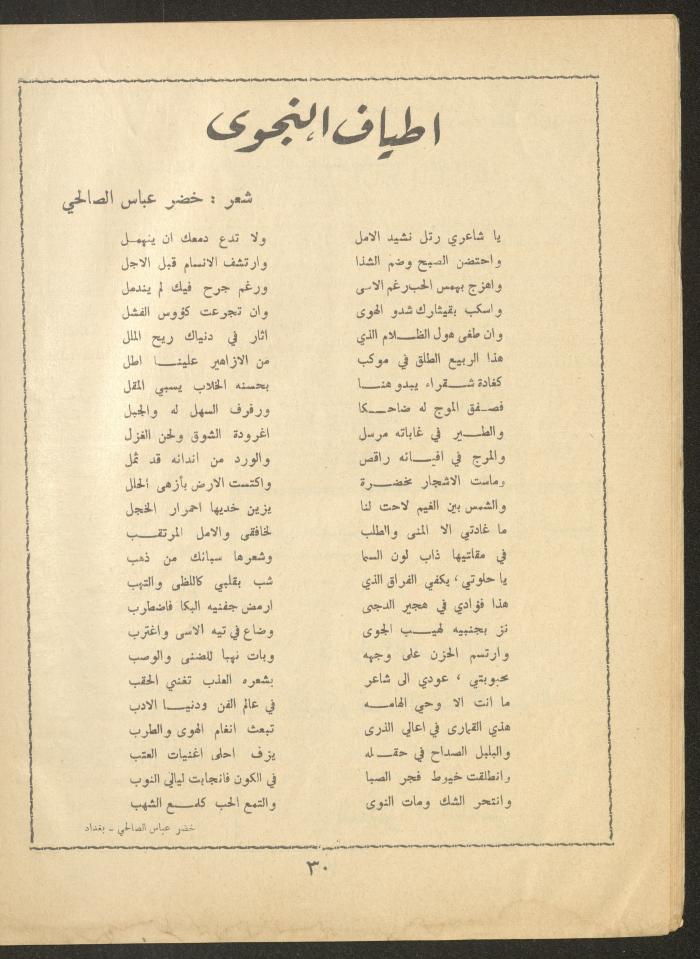 اطياف النجوى
شعر : خضر عباس الصالحي
يا شاعري رتل نشيد الامل ولا تدع دمعك ان ينهمل
واحتضن الصبح وضم الشذا وارتشف الانسام قبل الاجل
واهزج بهمس الحب رغم الاسى ورغم جرح فيك لم يندمل
واسكب بقيثارك شدو الهوى وان تجرعت كؤوس الفشل
وان طغى هول الظلام الذي اثار في دنياك ريح الملل
هذا الربيع الطلق في موكب من الازاهير علينا اطل
كغادة شقراء يبدو هنا بحسنه الخلاب يسبي المقل
فصفق الموج له ضاحكا ورفرف السهل له والجبل
والطير في غاباته مرسل اغرودة الشوق ولحن الغزل
والمرج في افيائه راقص والورد من اندائه قد ثمل
وماست الاشجار مخضرة واكتست الارض بأزهى الحلل
والشمس بين الغيم لاحت لنا يزين خديها احمرار الخجل
ما غادتي الا المنى والطلب لخافقي والامل المرتقب
في مقلتيها ذاب لون السما وشعرها سبائك من ذهب
يا حلوتي ، يكفي الفراق الذي شب بقلبي كاللظى والتهب
هذا فؤادي في هجير الدجى ارمض جفنيه البكا فاضطرب
نز بجنبيه لهيب الجوى وضاع في تيه الاسى واغترب
وارتسم الحزن على وجهه وبات نهبا للضنى والوصب
محبوبتي ، عودي الى شاعر بشعره العذب تغنى الحقب
ما انت الا وحي الهامه في عالم الفن ودنيا الادب
هذي القمارى في اعالي الذرى تبعث انغام الهوى والطرب
والبلبل الصداح في حقله يزف احلى اغنيات العتب
وانطلقت خيوط فجر الصبا في الكون فانجابت ليالي النوب
وانتحر الشك ومات النوى والتمع الحب كلمع الشهب
خضر عباس الصالحي - بغداد
٣٠